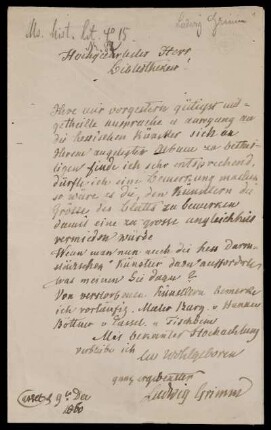 Ms. hist. lit. 4o 15.
Ludwig Grimm
Hochgeehrtester Herr
Bibliothekar!
Ihre mir vorgestern gütigst mit-
getheilte ansprache u anregung an
die hessischen Künstler sich an
Ihrem angelegten Album zu bethei-
ligen finde ich sehr entsprechend,
dürfte ich eine Bemerkung machen
so wäre es die, den Künstlern die
Grösse des Blatts zu bemerken
damit eine zu grosse ungleichheit
vermieden würde
Wenn man nun noch die hess Darm-
städtischen Künstler dazu auffordert
was meinen Sie dazu?
Von verstorbenen Künstlern bemerke
ich vorläufig. Maler Bury. v Hanau
Böttner v Cassel. u Tischbein
Mit bekannter Hochachtung
verbleibe ich
Euer Wohlgeboren
ganz ergebenster
Ludwig Grimm
Cassel 9 Dec
1860